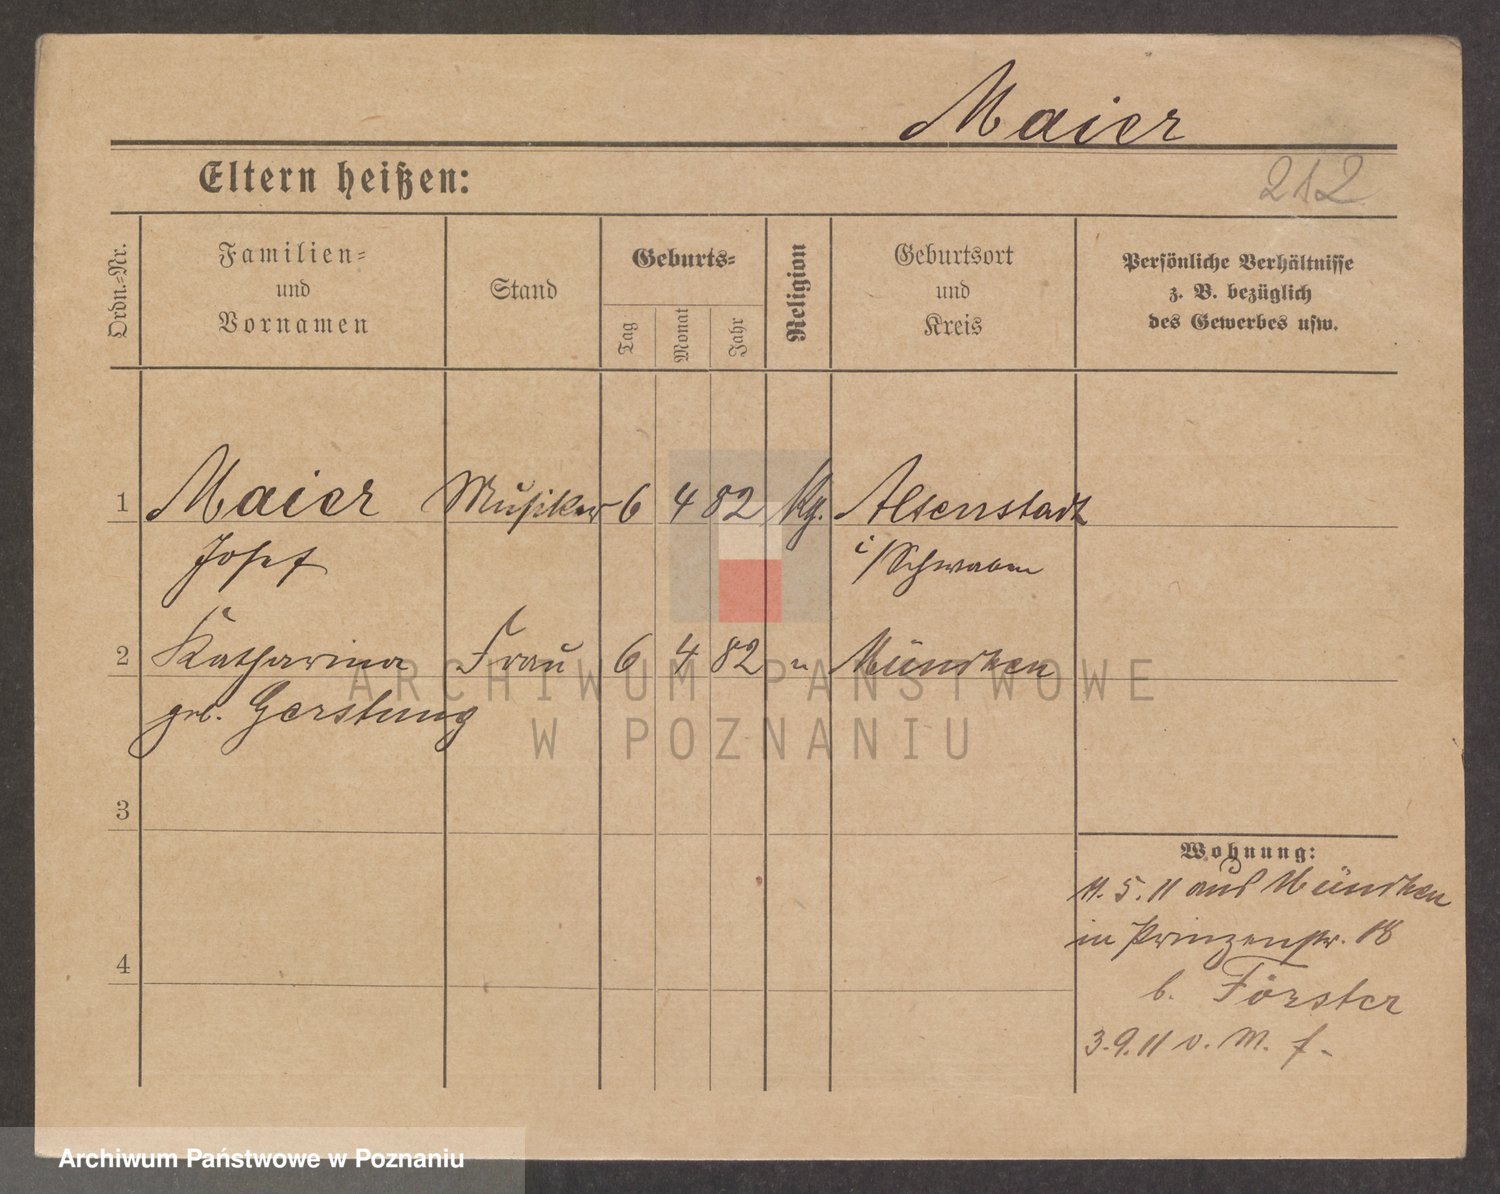 Maier
Eltern heißen:
212
Ordn.-Nr.
Familien-
und
Vornamen
Stand
Geburts-
Tag
Monat
Jahr
Religion
Geburtsort
und
Kreis
Persönliche Verhältnisse
z. B. bezüglich
des Gewerbes usw.
1 Maier Musiker 6 4 82 Kg. Alsenstadt
Josef i/Schwaben
2 Katharina Frau 6 4 82 " München
geb. Gerstung
3
4
Wohnung:
11.5.11 aus München
in Prinzenstr. 18
b. Förster
3.9.11 v. M. f.
ARCHIWUM PAŃSTWOWE
W POZNANIU
Archiwum Państwowe w Poznaniu